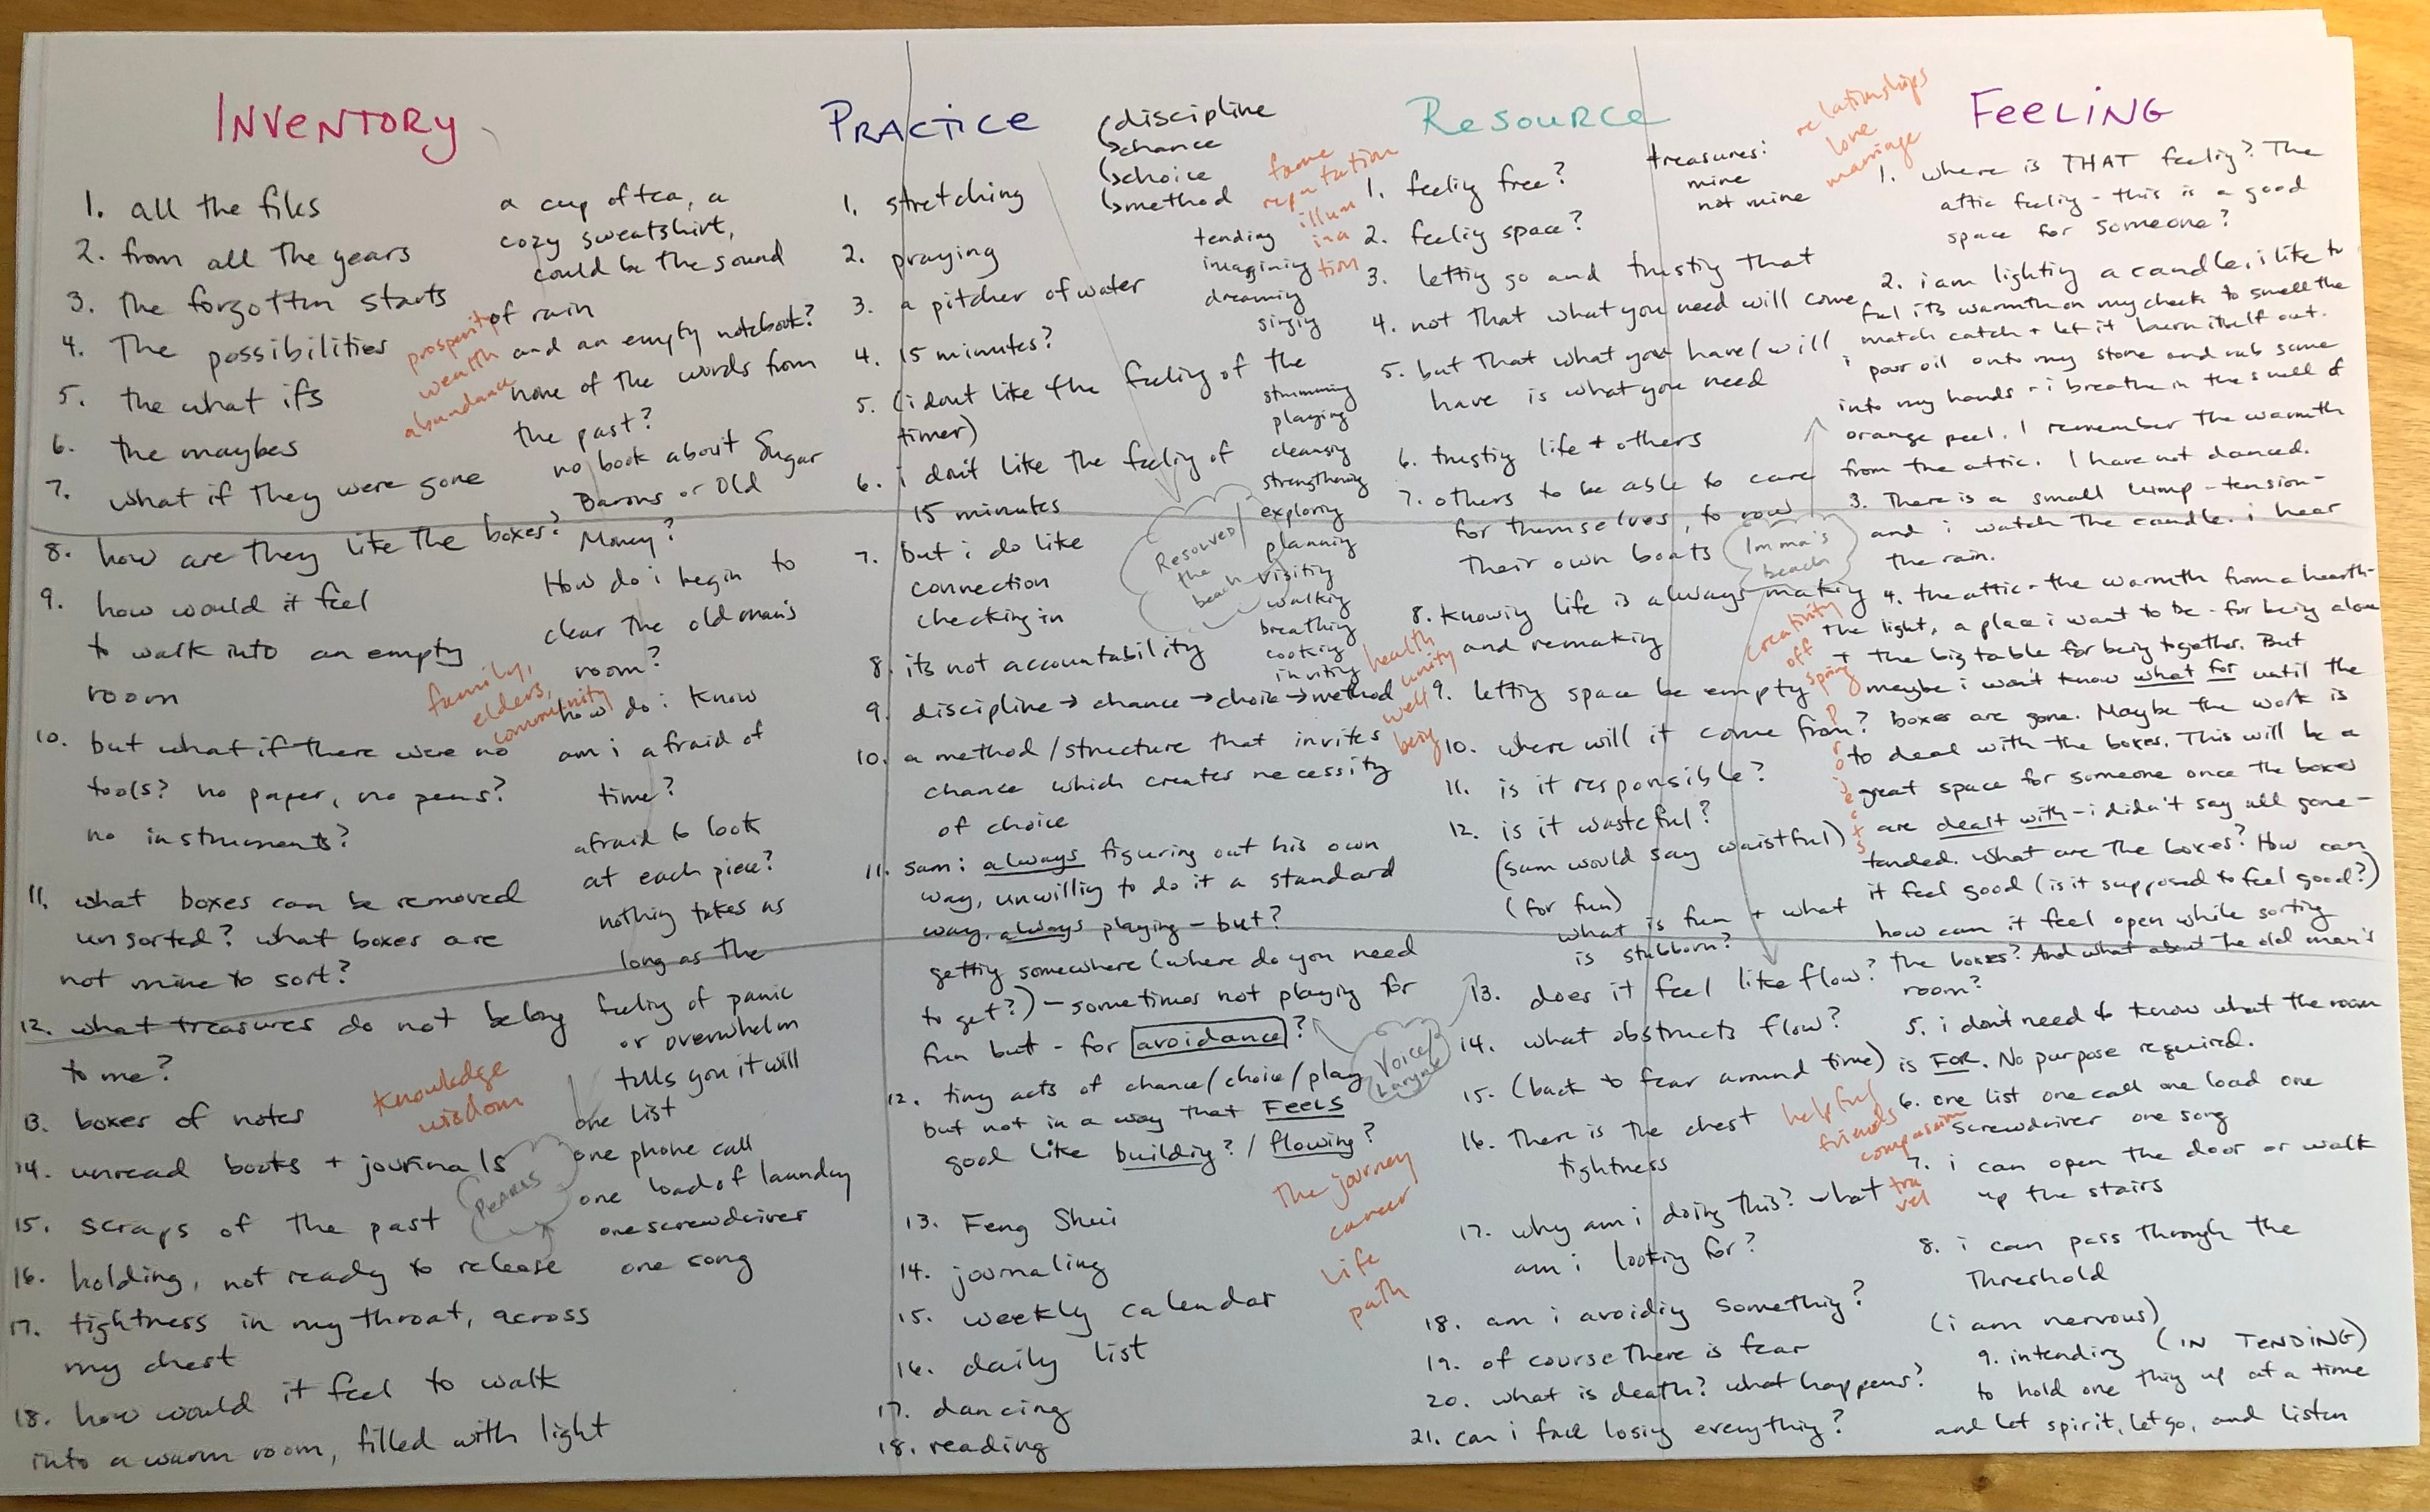 INVENTORY
1. all the files
2. from all the years
3. the forgotten starts
4. The possibilities
5. the what ifs
6. the maybes
7. what if they were gone
8. how are they like the boxes?
9. how would it feel
to walk into an empty
room
10. but what if there were no
tools? no paper, no pens?
no instruments?
11. what boxes can be removed
unsorted? what boxes are
not mine to sort?
12. what treasures do not belong
to me?
13. boxes of notes
14. unread books + journals
15. scraps of the past
16. holding, not ready to release
17. tightness in my throat, across
my chest
18. how would it feel to walk
into a warm room, filled with light
a cup of tea, a
cozy sweatshirt,
could be the sound
of rain
and an empty notebook?
none of the words from
the past?
no book about Sugar
Barons or Old
Money?
How do i begin to
clear the old man's
room?
how do i know
am i afraid of
time?
afraid to look
at each piece?
nothing takes as
long as the
feeling of panic
or overwhelm
tells you it will
one list
one phone call
one load of laundry
one screwdriver
one song
prosperity
wealth
abundance
family,
elders,
community
knowledge
wisdom
PEARLS
PRACTICE
discipline
chance
choice
method
1. stretching
2. praying
3. a pitcher of water
4. 15 minutes?
5. (i dont like the feeling of the
timer)
6. i don't like the feeling of
15 minutes
7. but i do like
connection
checking in
8. its not accountability
9. discipline → chance → choice → method
10. a method/structure that invites
chance which creates necessity
of choice
11. sam: always figuring out his own
way, unwilling to do it a standard
way, always playing - but?
getting somewhere (where do you need
to get?) - sometimes not playing for
fun but - for avoidance?
12. tiny acts of chance/choice/play
but not in a way that FEELS
good like building? / flowing?
13. Feng Shui
14. journaling
15. weekly calendar
16. daily list
17. dancing
18. reading
tending
imagining
dreaming
singing
strumming
playing
cleansing
strengthening
exploring
planning
visiting
walking
breathing
cooking
inviting
fame
reputation
illum
ina
tion
Resolved/
the
beach
health
unity
well
being
Voice/
Larynx
the journey
career
life
path
Resource
treasures:
mine
not mine
1. feeling free?
2. feeling space?
3. letting go and trusting that
4. not that what you need will come
5. but that what you have/will
have is what you need
6. trusting life + others
7. others to be able to care
for themselves, to row
their own boats
8. knowing life is always making
and remaking
9. letting space be empty
10. where will it come from?
11. is it responsible?
12. is it wasteful?
(sam would say waistful)
(for fun)
what is fun + what
is stubborn?
13. does it feel like flow?
14. what obstructs flow?
15. (back to fear around time)
16. There is the chest
tightness
17. why am i doing this? what
am i looking for?
18. am i avoiding something?
19. of course there is fear
20. what is death? what happens?
21. can i face losing everything?
relationships
love
marriage
Imma's
beach
creativity
off
spring
projects
helpful
friends
compassion
tra
vel
FEELING
1. where is THAT feeling? The
attic feeling - this is a good
space for someone?
2. i am lighting a candle, i like to
feel its warmth on my cheek to smell the
match catch + let it burn itself out.
i pour oil onto my stone and rub some
into my hands - i breathe in the smell of
orange peel. I remember the warmth
from the attic. I have not danced.
3. There is a small lump - tension -
and i watch the candle. i hear
the rain.
4. the attic - the warmth from a hearth -
the light, a place i want to be - for being alone
+ the big table for being together. But
maybe i won't know what for until the
boxes are gone. Maybe the work is
to deal with the boxes. This will be a
great space for someone once the boxes
are dealt with - i didn't say all gone -
tended. What are the boxes? How can
it feel good (is it supposed to feel good?)
how can it feel open while sorting
the boxes? And what about the old man's
room?
5. i don't need to know what the room
is FOR. No purpose required.
6. one list one call one load one
screwdriver one song
7. i can open the door or walk
up the stairs
8. i can pass through the
Threshold
(i am nervous)
9. intending (IN TENDING)
to hold one thing up at a time
and let spirit, let go, and listen